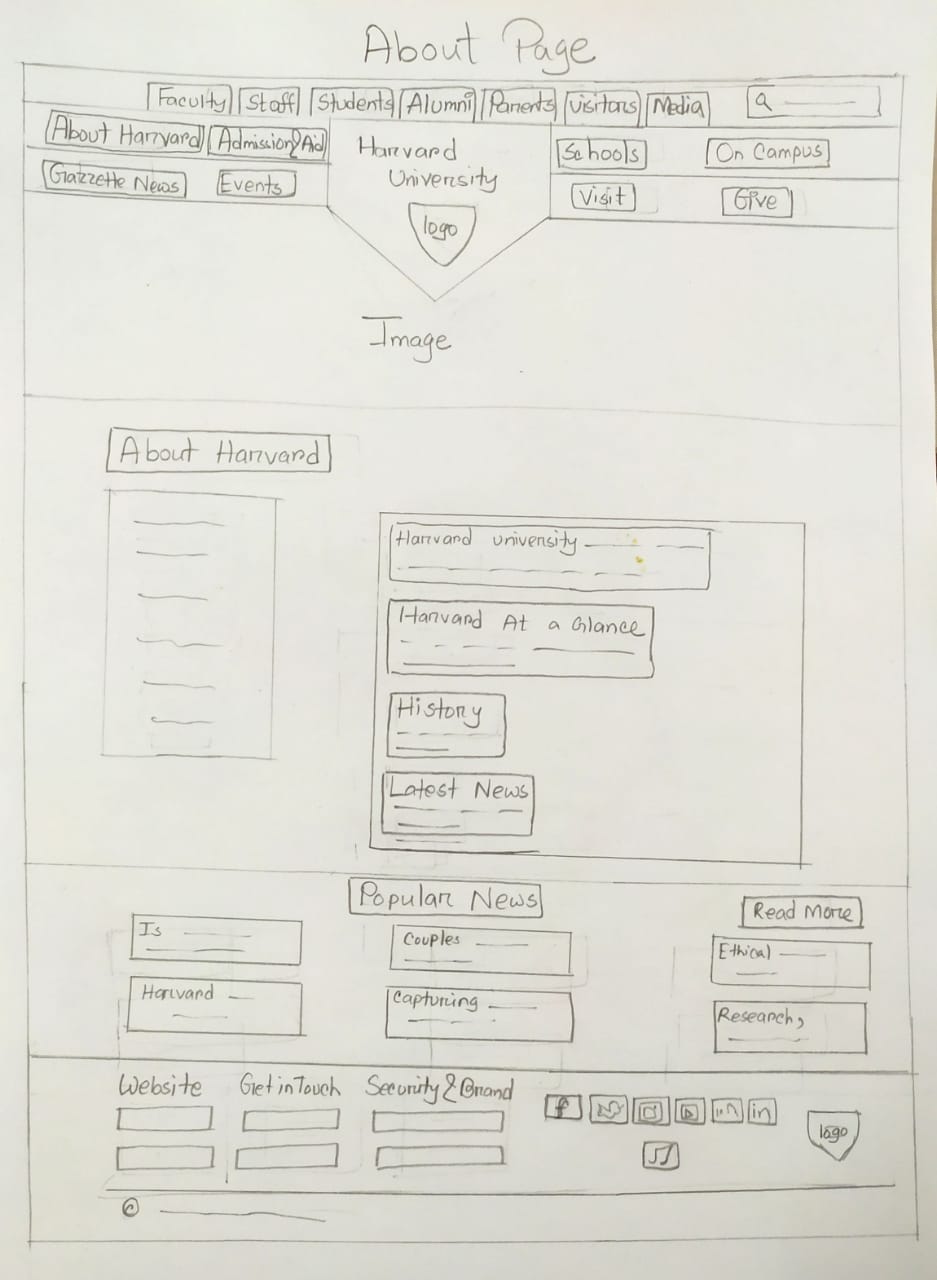 About Page
Faculty Staff Students Alumni Parents Visitors Media
About Harvard Admission & Aid
Harvard University
Schools On Campus
Gazzette News Events
Visit Give
logo
Image
About Harvard
Harvard University
Harvard At a Glance
History
Latest News
Popular News
Read More
Is
Couples
Ethical
Harvard
Capturing
Research,
Website Get in Touch Security & Brand
f
in
logo
©